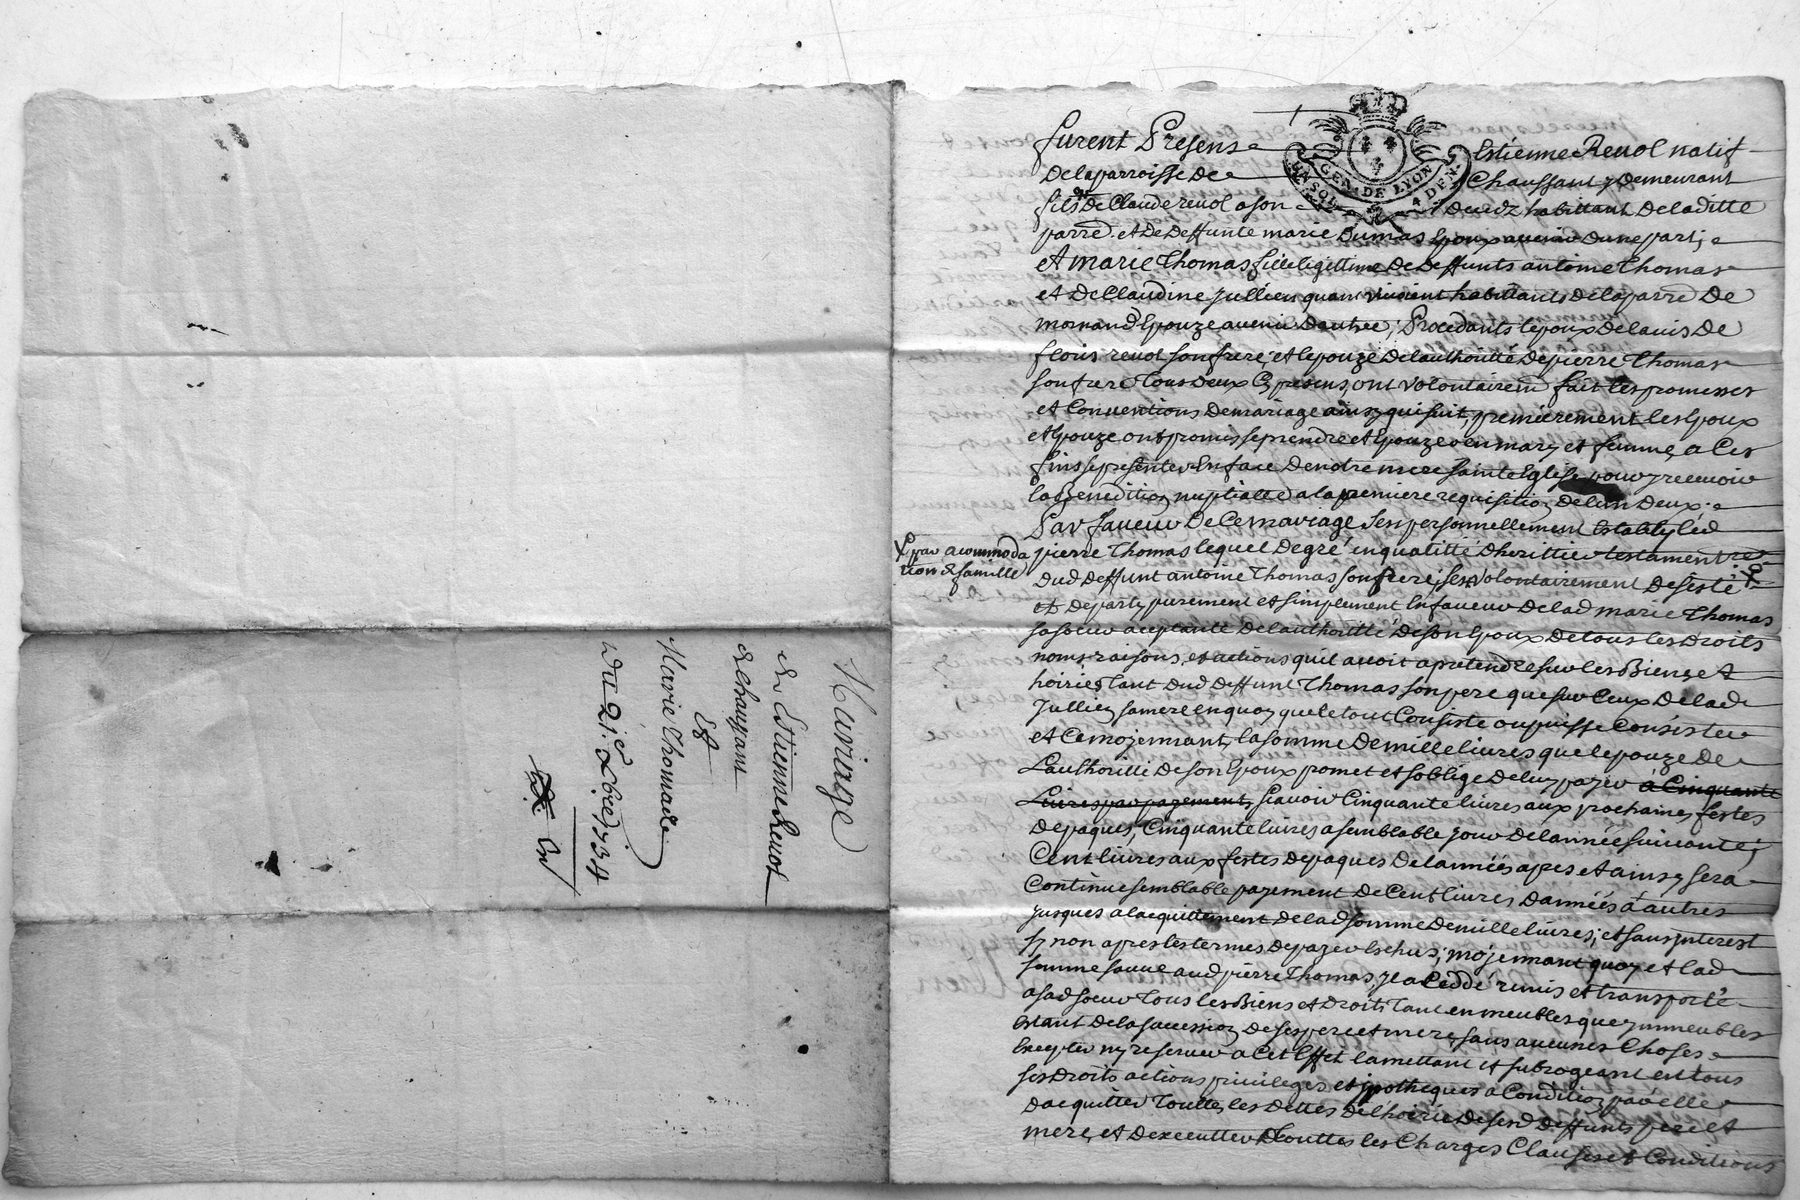 Mariage
de Estienne Revol
de chaussant
Et
Marie Thomas
du 21e 1734
furent Presens Estienne Revol natif
de la parroisse de Chaussant y demeurant
fils de Claude revol habittant de laditte
parre. et de deffunte marie Dumas Epoux avenir dune part;
et marie Thomas fille legittime de deffunts antoine Thomas
et de Claudine jullien quand vivoient habittants de la parre de
mornand Epouze avenir dautre; Procedants lepoux de lavis de
floris revol son frere; et lepouze de lauthoritté de pierre Thomas
son frere tous deux Cy presens, ont volontairemt fait les promesses
et Conventions de mariage ainsy qui suit, premierement les Epoux
et Epouze ont promis se prendre et Epouzer en mary et femme, a Ces
fins se presenter En face de notre mere sainte Eglise pour y recevoir
la Benediction nuptialle a la premiere requisition de lun deux.
Par faveur de Ce mariage sest personnellement Estably led
pierre Thomas lequel de gré en qualitté dherittier testamentre
par acommoda
tion de famille
dud deffunt antoine Thomas son frere, sest volontairement desesté
et departy purement et simplement En faveur de lad marie Thomas
sa soeur aceptante de lauthoritté de son Epoux de tous les droits
noms raisons, et actions quil avoit a pretendre sur les Biens et
hoiries tant dud deffunt Thomas son pere que sur Ceux de lad
jullien sa mere en quoy que le tout Consiste ou puisse Consister
et Ce mojennant, la somme de mille livres que lepouze de
Lauthoritté de son Epoux promet et soblige de luy payer a Cinquante
Livres par payement, scavoir Cinquante livres aux prochaines festes
de paques, Cinquante livres a semblable jour de lannée suivante;
Cent livres aux festes de paques de lannéé apres et ainsy sera
Continue semblable payement de Cent livres dannéés a autres
jusques a lacquittement de lad somme de mille livres; et sans interest
sy non apres les termes de payer Eschus; mojennant quoy et lad
somme sauve aud pierre Thomas, il a Ceddé remis et transporté
a sad soeur tous les Biens et droits tant en meubles que immeubles
Estant de la sucession de ses pere et mere, sans aucunes Choses
Excepter ny reserver a Cet Effet la mettant et subrogeant en tous
ses droits actions privileges et jpotheques a Condition par elle
dacquitter toutte les dettes de lhoirie de sesd deffunts pere et
mere, et dexecutter touttes les Charges Clauses et Conditions